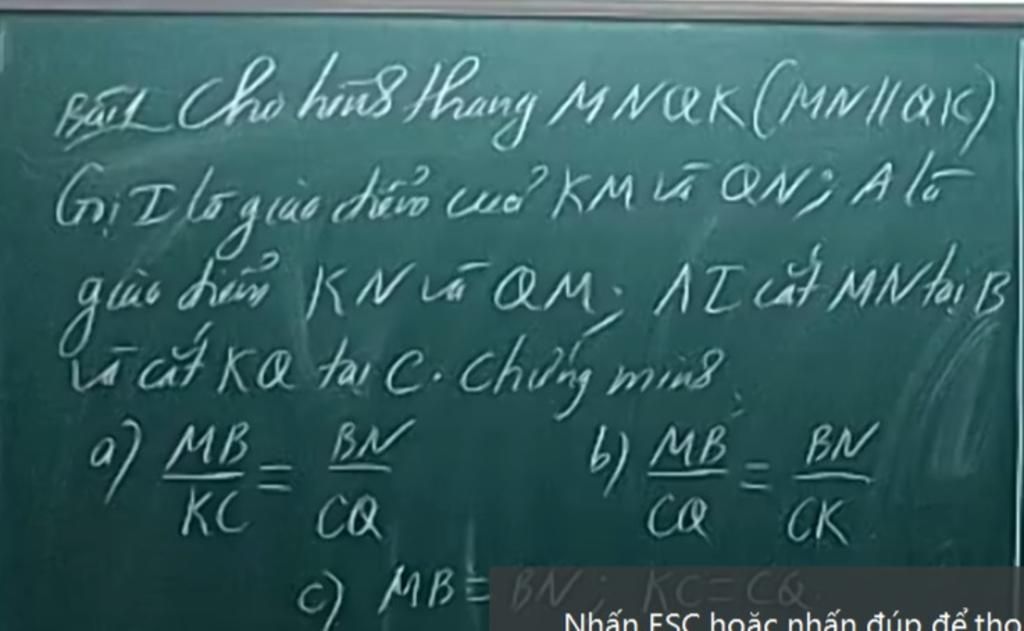 Bài 1 Cho hình thang MNQK (MN // QK)
Gọi I là giao điểm của KM và QN; A là
giao điểm KN và QM; AI cắt MN tại B
và cắt KQ tại C. Chứng minh:
a) MB/KC = BN/CQ b) MB/CQ = BN/CK
c) MB = BN; KC = CQ
Nhấn ESC hoặc nhấn đúp để tho